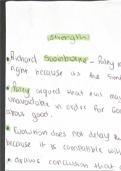 strengths
• Richard Swinburne - Paley
right because as the
• Paley argued that evil may
unavoidable in order for Go
about good.
• Evolution does not delay
because it is compatible wit
• draws conclusion that